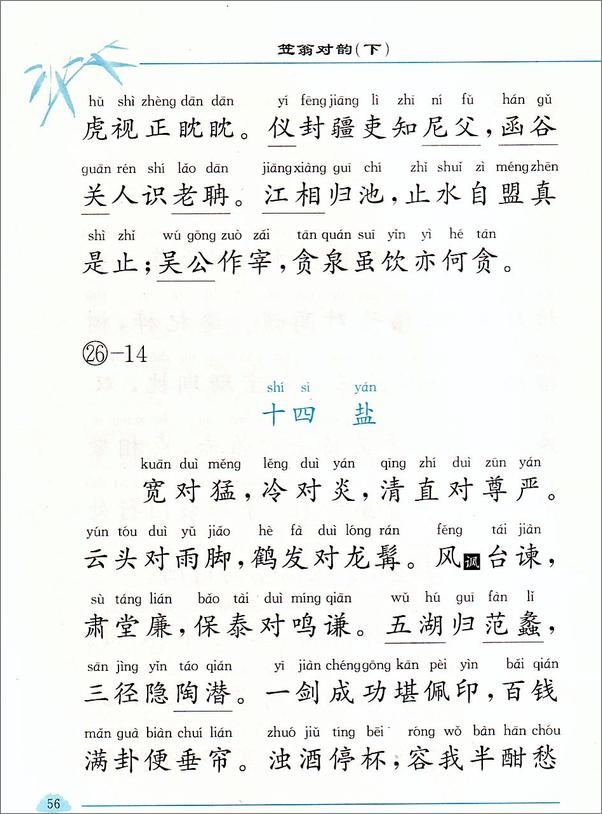 笠翁对韵(下)
hǔ shì zhèng dān dān yí fēng jiāng lì zhī ní fǔ hán gǔ
虎视正眈眈。仪封疆吏知尼父，函谷
guān rén shí lǎo dān jiāng xiàng guī chí zhǐ shuǐ zì méng zhēn
关人识老聃。江相归池，止水自盟真
shì zhǐ wú gōng zuò zǎi tān quán suī yǐn yì hé tān
是止；吴公作宰，贪泉虽饮亦何贪。
㉖-14
shí sì yán
十四 盐
kuān duì měng lěng duì yán qīng zhí duì zūn yán
宽对猛，冷对炎，清直对尊严。
yún tóu duì yǔ jiǎo hè fà duì lóng rán fěng tái jiàn
云头对雨脚，鹤发对龙髯。风讽台谏，
sù táng lián bǎo tài duì míng qiān wǔ hú guī fàn lǐ
肃堂廉，保泰对鸣谦。五湖归范蠡，
sān jìng yǐn táo qián yī jiàn chéng gōng kān pèi yìn bǎi qián
三径隐陶潜。一剑成功堪佩印，百钱
mǎn guà biàn chuí lián zhuó jiǔ tíng bēi róng wǒ bàn hān chóu
满卦便垂帘。浊酒停杯，容我半酣愁
56